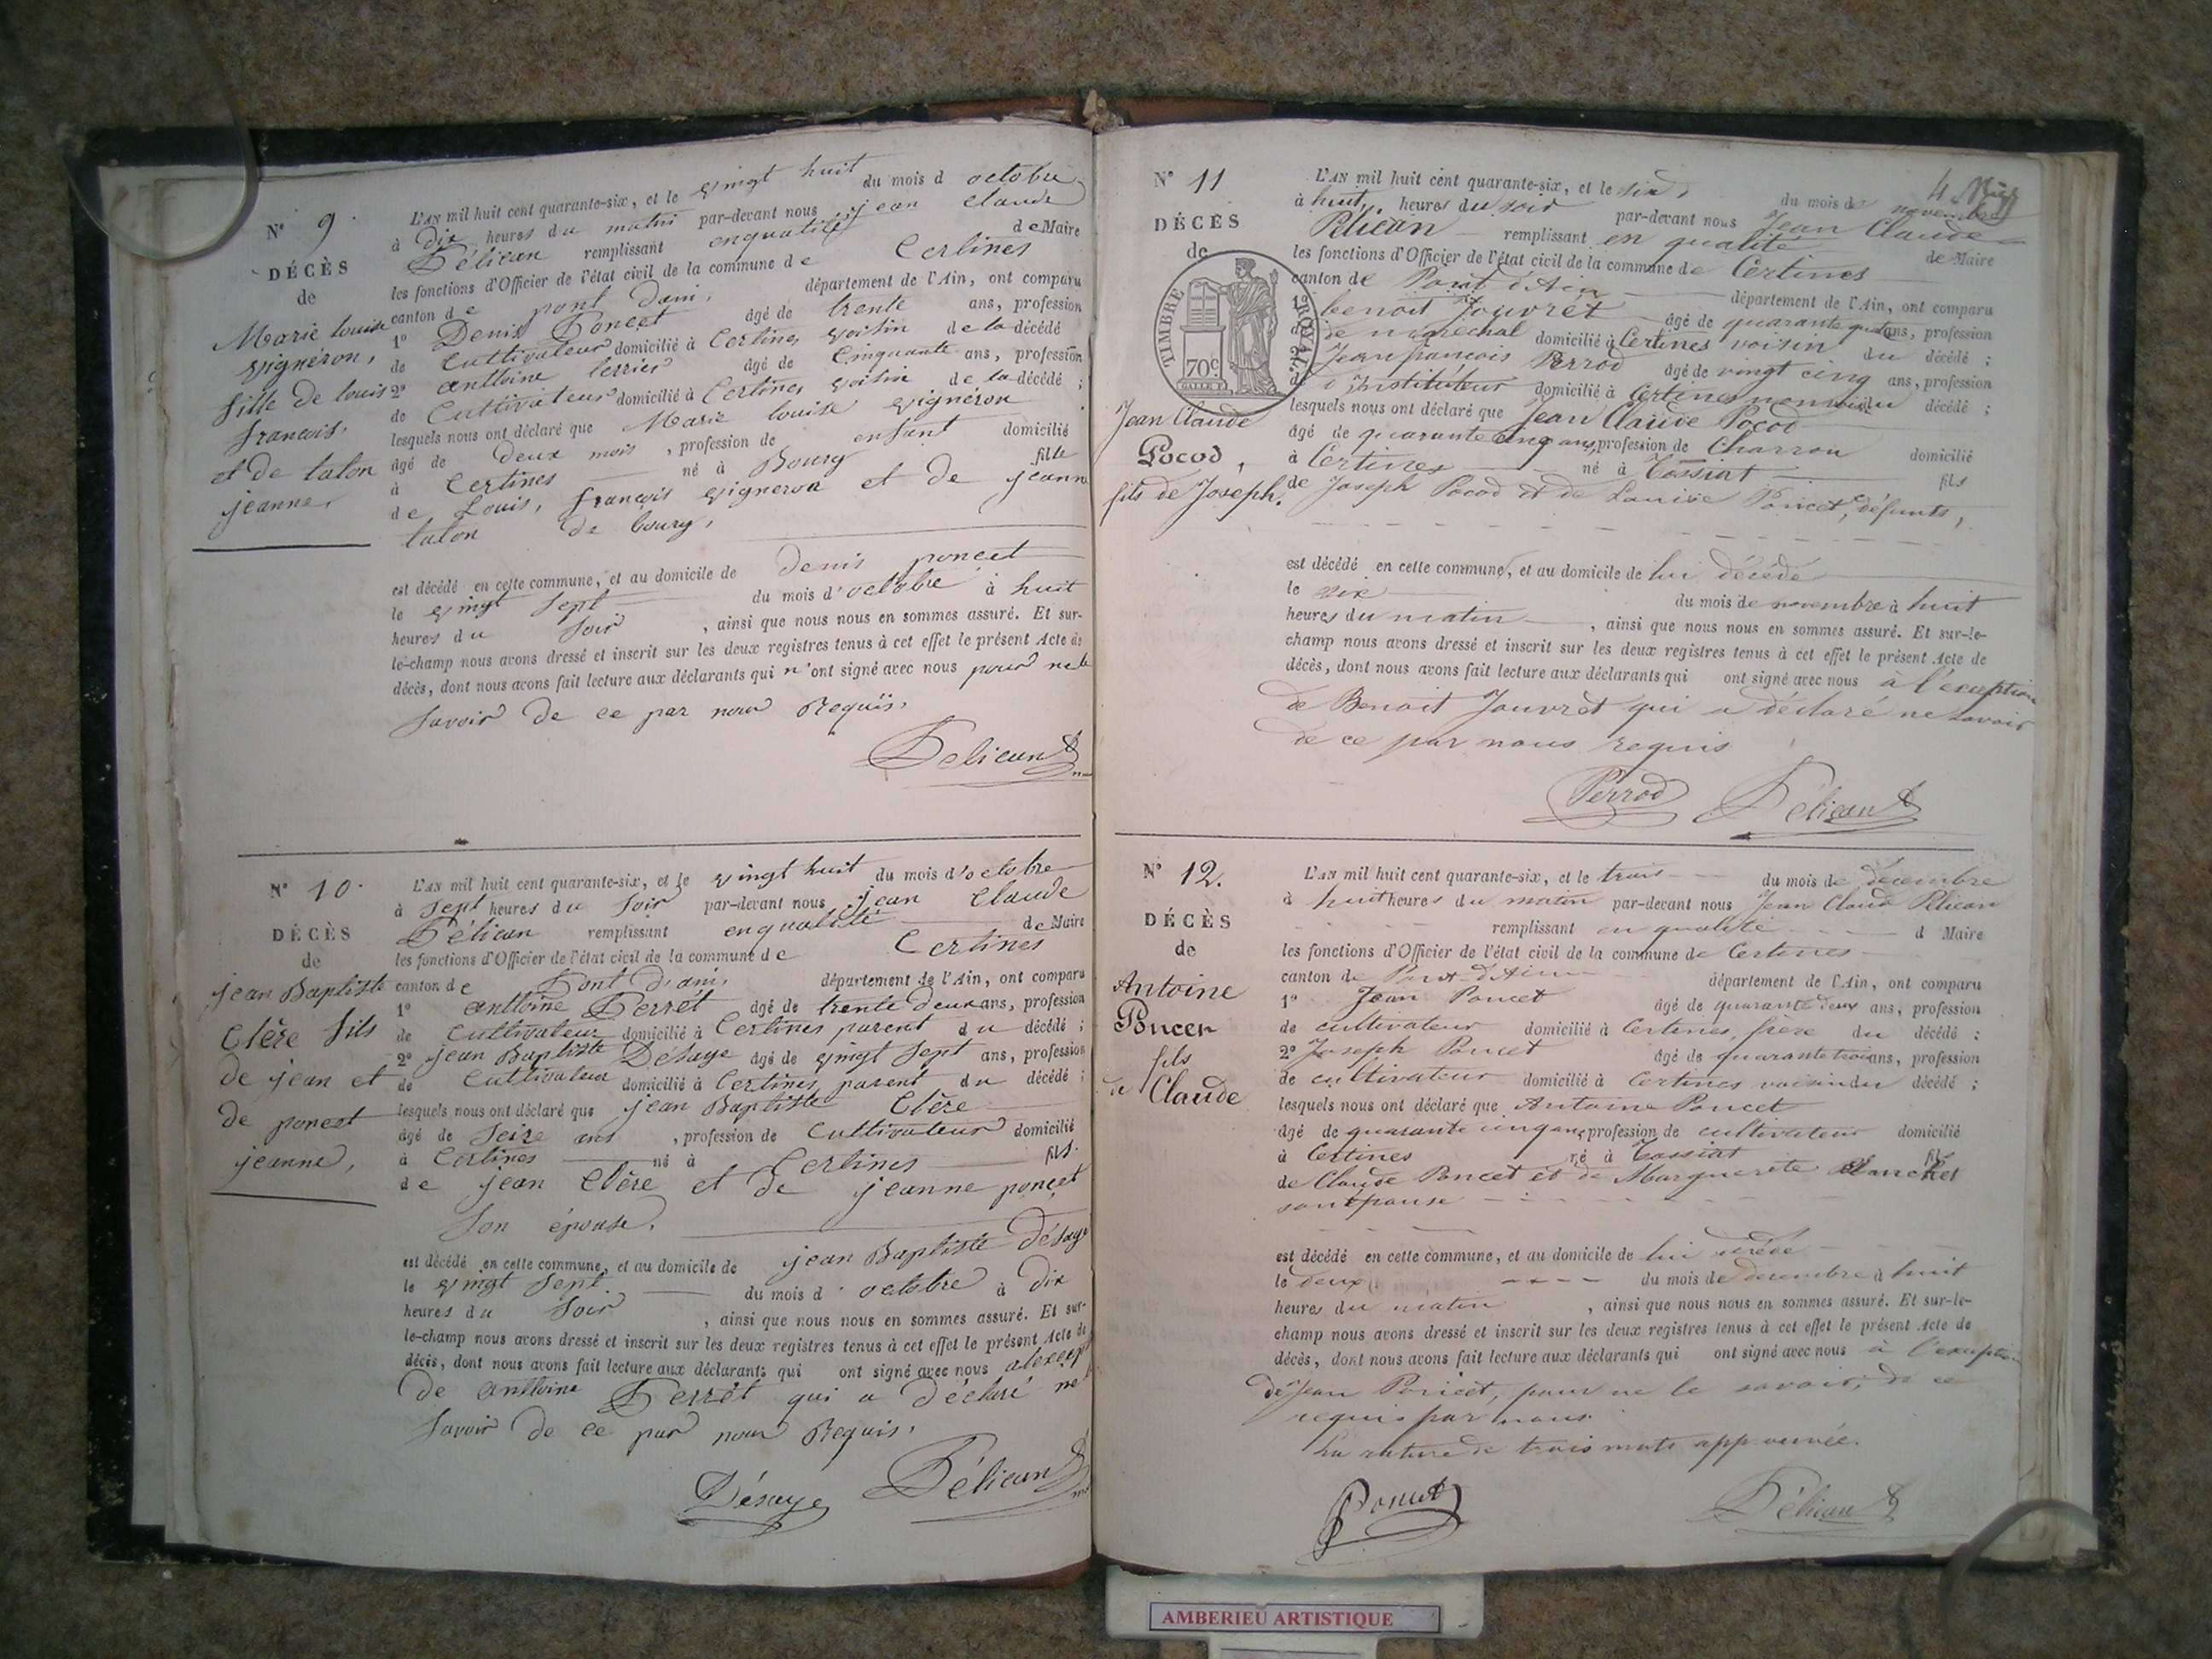 N° 9.
DÉCÈS
de
Marie louise
vigneron,
fille de louis
francois,
et de talon
jeanne,
L'AN mil huit cent quarante-six, et le vingt huit du mois d octobre
à Dix heures du matin par-devant nous jean claude
Pélican remplissant enqualité de Maire
les fonctions d'Officier de l'état civil de la commune de Certines
canton de pont Dain, département de l'Ain, ont comparu
1° Denis Poncet âgé de trente ans, profession
de Cultivateur domicilié à Certines voisin de la décédé
2° anttoine âgé de Cinquante ans, profession
de Cultivateur domicilié à Certines voisin de la décédé ;
lesquels nous ont déclaré que Marie louise vigneron
âgé de deux mois , profession de enfant domicilié
à Certines né à Bourg fille
de Louis, françois vigneron et de jeanne
talon de bourg,
est décédé en cette commune, et au domicile de denis poncet
le vingt sept du mois d'octobre à huit
heures du soir , ainsi que nous nous en sommes assuré. Et sur-
le-champ nous avons dressé et inscrit sur les deux registres tenus à cet effet le présent Acte de
décès, dont nous avons fait lecture aux déclarants qui n'ont signé avec nous pour ne le
savoir de ce par nous Requis,
Pélican
N° 10.
DÉCÈS
de
jean Baptiste
Clère fils
de jean et
de poncet
jeanne,
L'AN mil huit cent quarante-six, et le vingt huit du mois d'octobre
à sept heures du soir par-devant nous jean Claude
Pélican remplissant enqualité de Maire
les fonctions d'Officier de l'état civil de la commune de Certines
canton de Pont D'ain, département de l'Ain, ont comparu
1° anttoine Perret âgé de trente deux ans, profession
de Cultivateur domicilié à Certines parent du décédé ;
2° jean Baptiste Désaye âgé de vingt sept ans, profession
de Cultivateur domicilié à Certines parent du décédé ;
lesquels nous ont déclaré que jean Baptiste Clère
âgé de seize ans , profession de Cultivateur domicilié
à Certines né à Certines fils
de jean Clère et de jeanne poncet
son épouse,
est décédé en cette commune, et au domicile de jean Baptiste Désaye
le vingt sept du mois d'octobre à dix
heures du soir , ainsi que nous nous en sommes assuré. Et sur-
le-champ nous avons dressé et inscrit sur les deux registres tenus à cet effet le présent Acte de
décès, dont nous avons fait lecture aux déclarants qui ont signé avec nous
de anttoine Perret qui a déclaré ne
savoir de ce par nous Requis,
Désaye Pélican
4.
N° 11
DÉCÈS
de
TIMBRE ROYAL.
70c
Jean Claude
Pocod,
fils de Joseph.
L'AN mil huit cent quarante-six, et le six du mois de novembre
à huit heures du soir par-devant nous Jean Claude
Pélican remplissant en qualité de Maire
les fonctions d'Officier de l'état civil de la commune de Certines
canton de Pont d'Ain département de l'Ain, ont comparu
1° benoit Jouvret âgé de quarante ans, profession
de maréchal domicilié à Certines voisin du décédé ;
2° Jean francois Perrod âgé de vingt cinq ans, profession
d'Instituteur domicilié à Certines du décédé ;
lesquels nous ont déclaré que Jean Claude Pocod
âgé de quarante cinq ans, profession de Charron domicilié
à Certines né à Tossiat fils
de Joseph Pocod et de Louise Poncet, défunts,
est décédé en cette commune, et au domicile de lui décédé
le six du mois de novembre à huit
heures du matin , ainsi que nous nous en sommes assuré. Et sur-le-
champ nous avons dressé et inscrit sur les deux registres tenus à cet effet le présent Acte de
décès, dont nous avons fait lecture aux déclarants qui ont signé avec nous à l'exception
de Benoit Jouvret qui a déclaré ne savoir
de ce par nous requis
Perrod Pélican
N° 12.
DÉCÈS
de
Antoine
Poncer
fils
de Claude
L'AN mil huit cent quarante-six, et le trois du mois de decembre
à huit heures du matin par-devant nous Jean Claude Pélican
remplissant en qualité d Maire
les fonctions d'Officier de l'état civil de la commune de Certines
canton de Pont d'Ain département de l'Ain, ont comparu
1° Jean Poncet âgé de quarante deux ans, profession
de cultivateur domicilié à Certines, frère du décédé :
2° Joseph Poncet âgé de quarante trois ans, profession
de cultivateur domicilié à Certines voisin du décédé ;
lesquels nous ont déclaré que Antoine Poncet
âgé de quarante cinq ans, profession de cultivateur domicilié
à Certines né à Tossiat fils
de Claude Poncet et de Marguerite
son épouse
est décédé en cette commune, et au domicile de lui décédé
le deux du mois de decembre à huit
heures du matin , ainsi que nous nous en sommes assuré. Et sur-le-
champ nous avons dressé et inscrit sur les deux registres tenus à cet effet le présent Acte de
décès, dont nous avons fait lecture aux déclarants qui ont signé avec nous à l'exception
de Jean Poncet, pour ne le savoir, de ce
requis par nous.
La rature de trois mots approuvée.
Poncet Pélican
AMBERIEU ARTISTIQUE